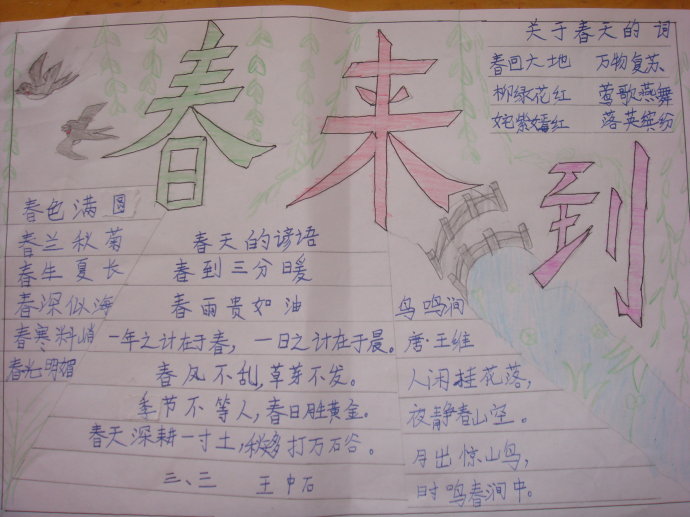 春来到
关于春天的词
春回大地 万物复苏
柳绿花红 莺歌燕舞
姹紫嫣红 落英缤纷
春色满园
春兰秋菊
春生夏长
春深似海
春寒料峭
春光明媚
春天的谚语
春到三分暖
春雨贵如油
一年之计在于春，一日之计在于晨。
春风不刮，草芽不发。
季节不等人，春日胜黄金。
春天深耕一寸土，秋多打万石谷。
三、三 王中石
鸟鸣涧
唐·王维
人闲挂花落，
夜静春山空。
月出惊山鸟，
时鸣春涧中。